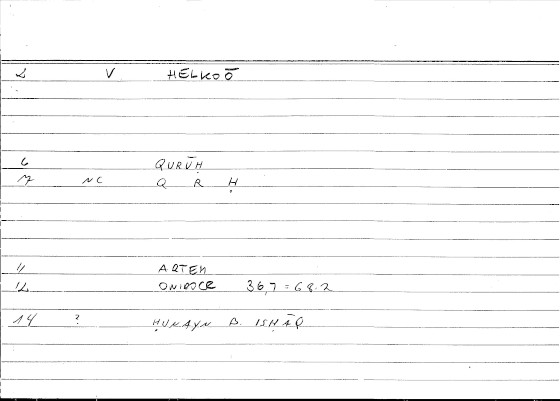 2 V HĒLKOŌ
6 QURŪḤ
7 NC Q R Ḥ
11 ARTEM
12 ONIROCR 36,7 = 68.2
14 ? ḤUNAYN B. ISḤĀQ